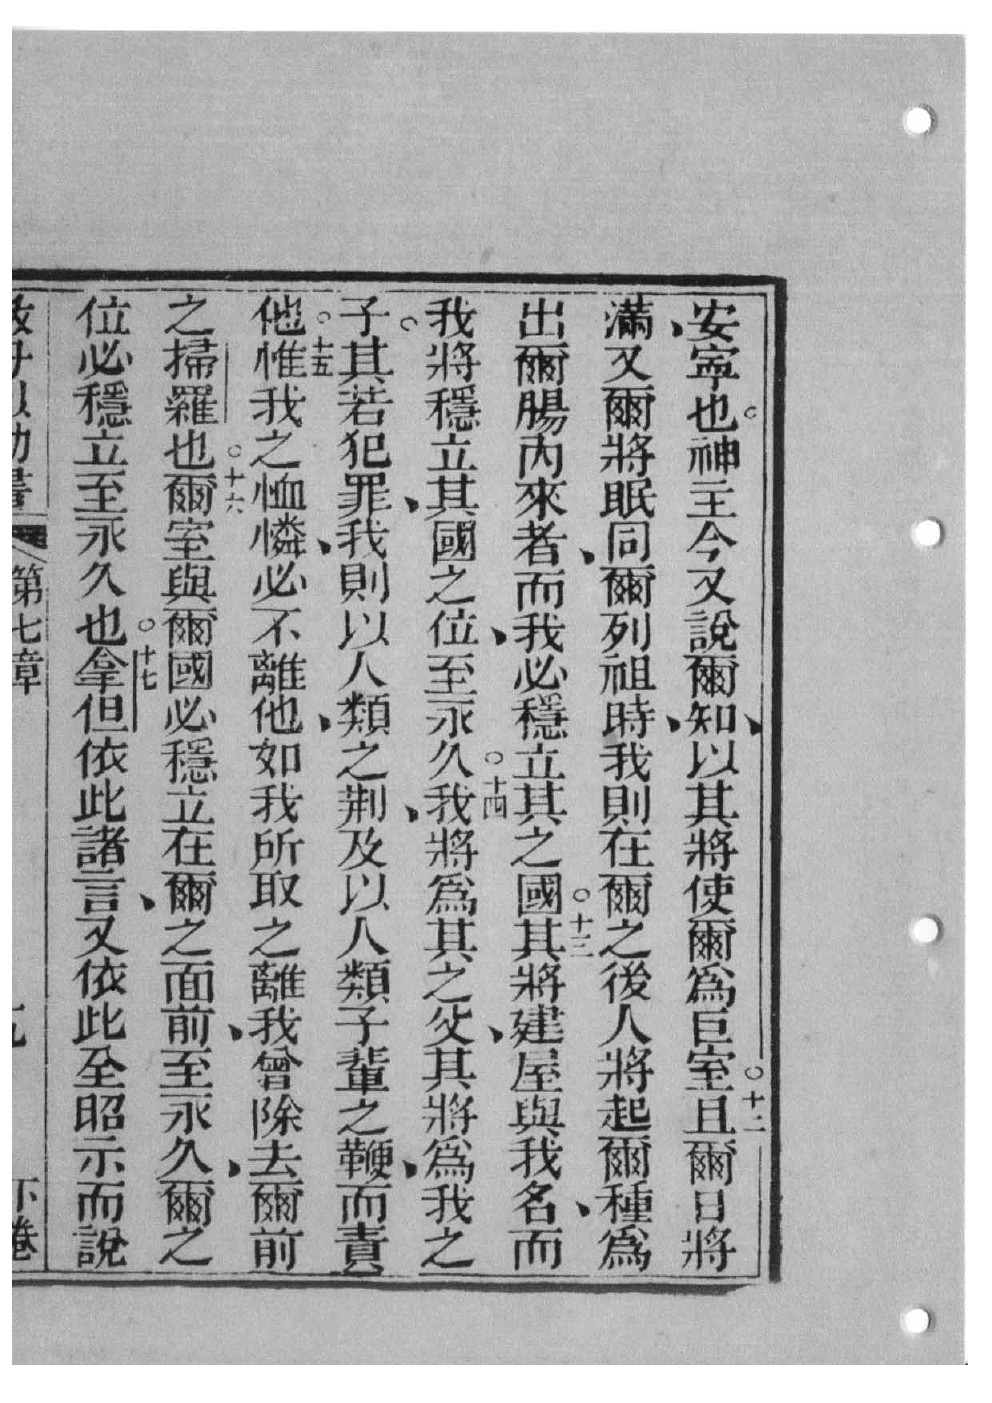 安寧也。神主今又說爾知、以其將使爾爲巨室○十二且爾日將
滿、又爾將眠同爾列祖時、我則在爾之後人將起爾種爲
出爾腸內來者、而我必穩立其之國○十三其將建屋與我名、而
我將穩立其國之位、至永久○十四我將爲其之父、其將爲我之
子。其若犯罪、我則以人類之荆、及以人類子輩之鞭、而責
他○十五惟我之恤憐、必不離他、如我所取之離我曾除去爾前
之掃羅也○十六爾室與爾國必穩立在爾之面前、至永久、爾之
位必穩立至永久也○十七拿但依此諸言、又依此全昭示而說
第七章
下卷